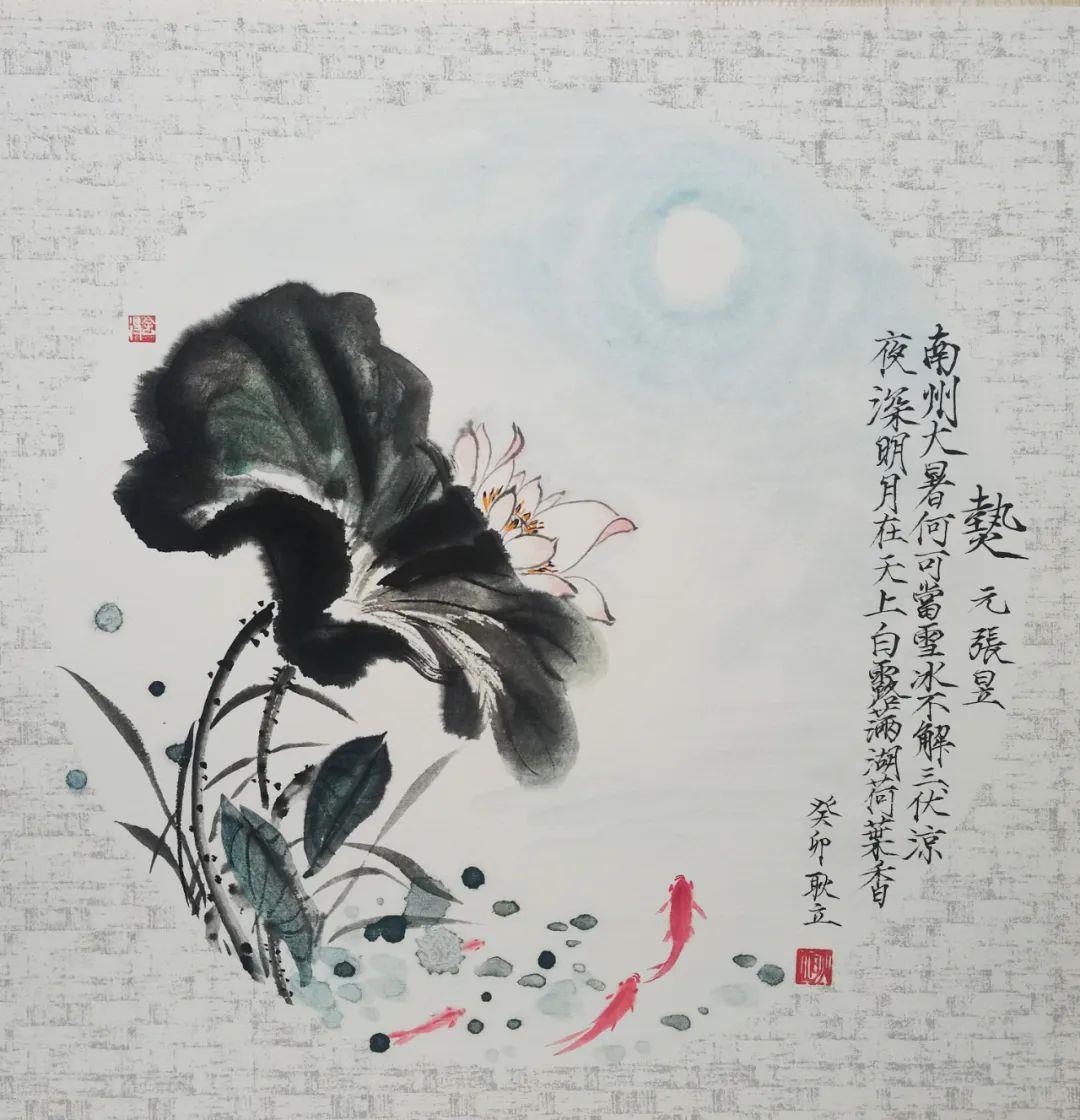 熱 元 張昱
南州大暑何可當雪冰不解三伏涼
夜深明月在天上白露滿湖荷葉香
癸卯 耿立